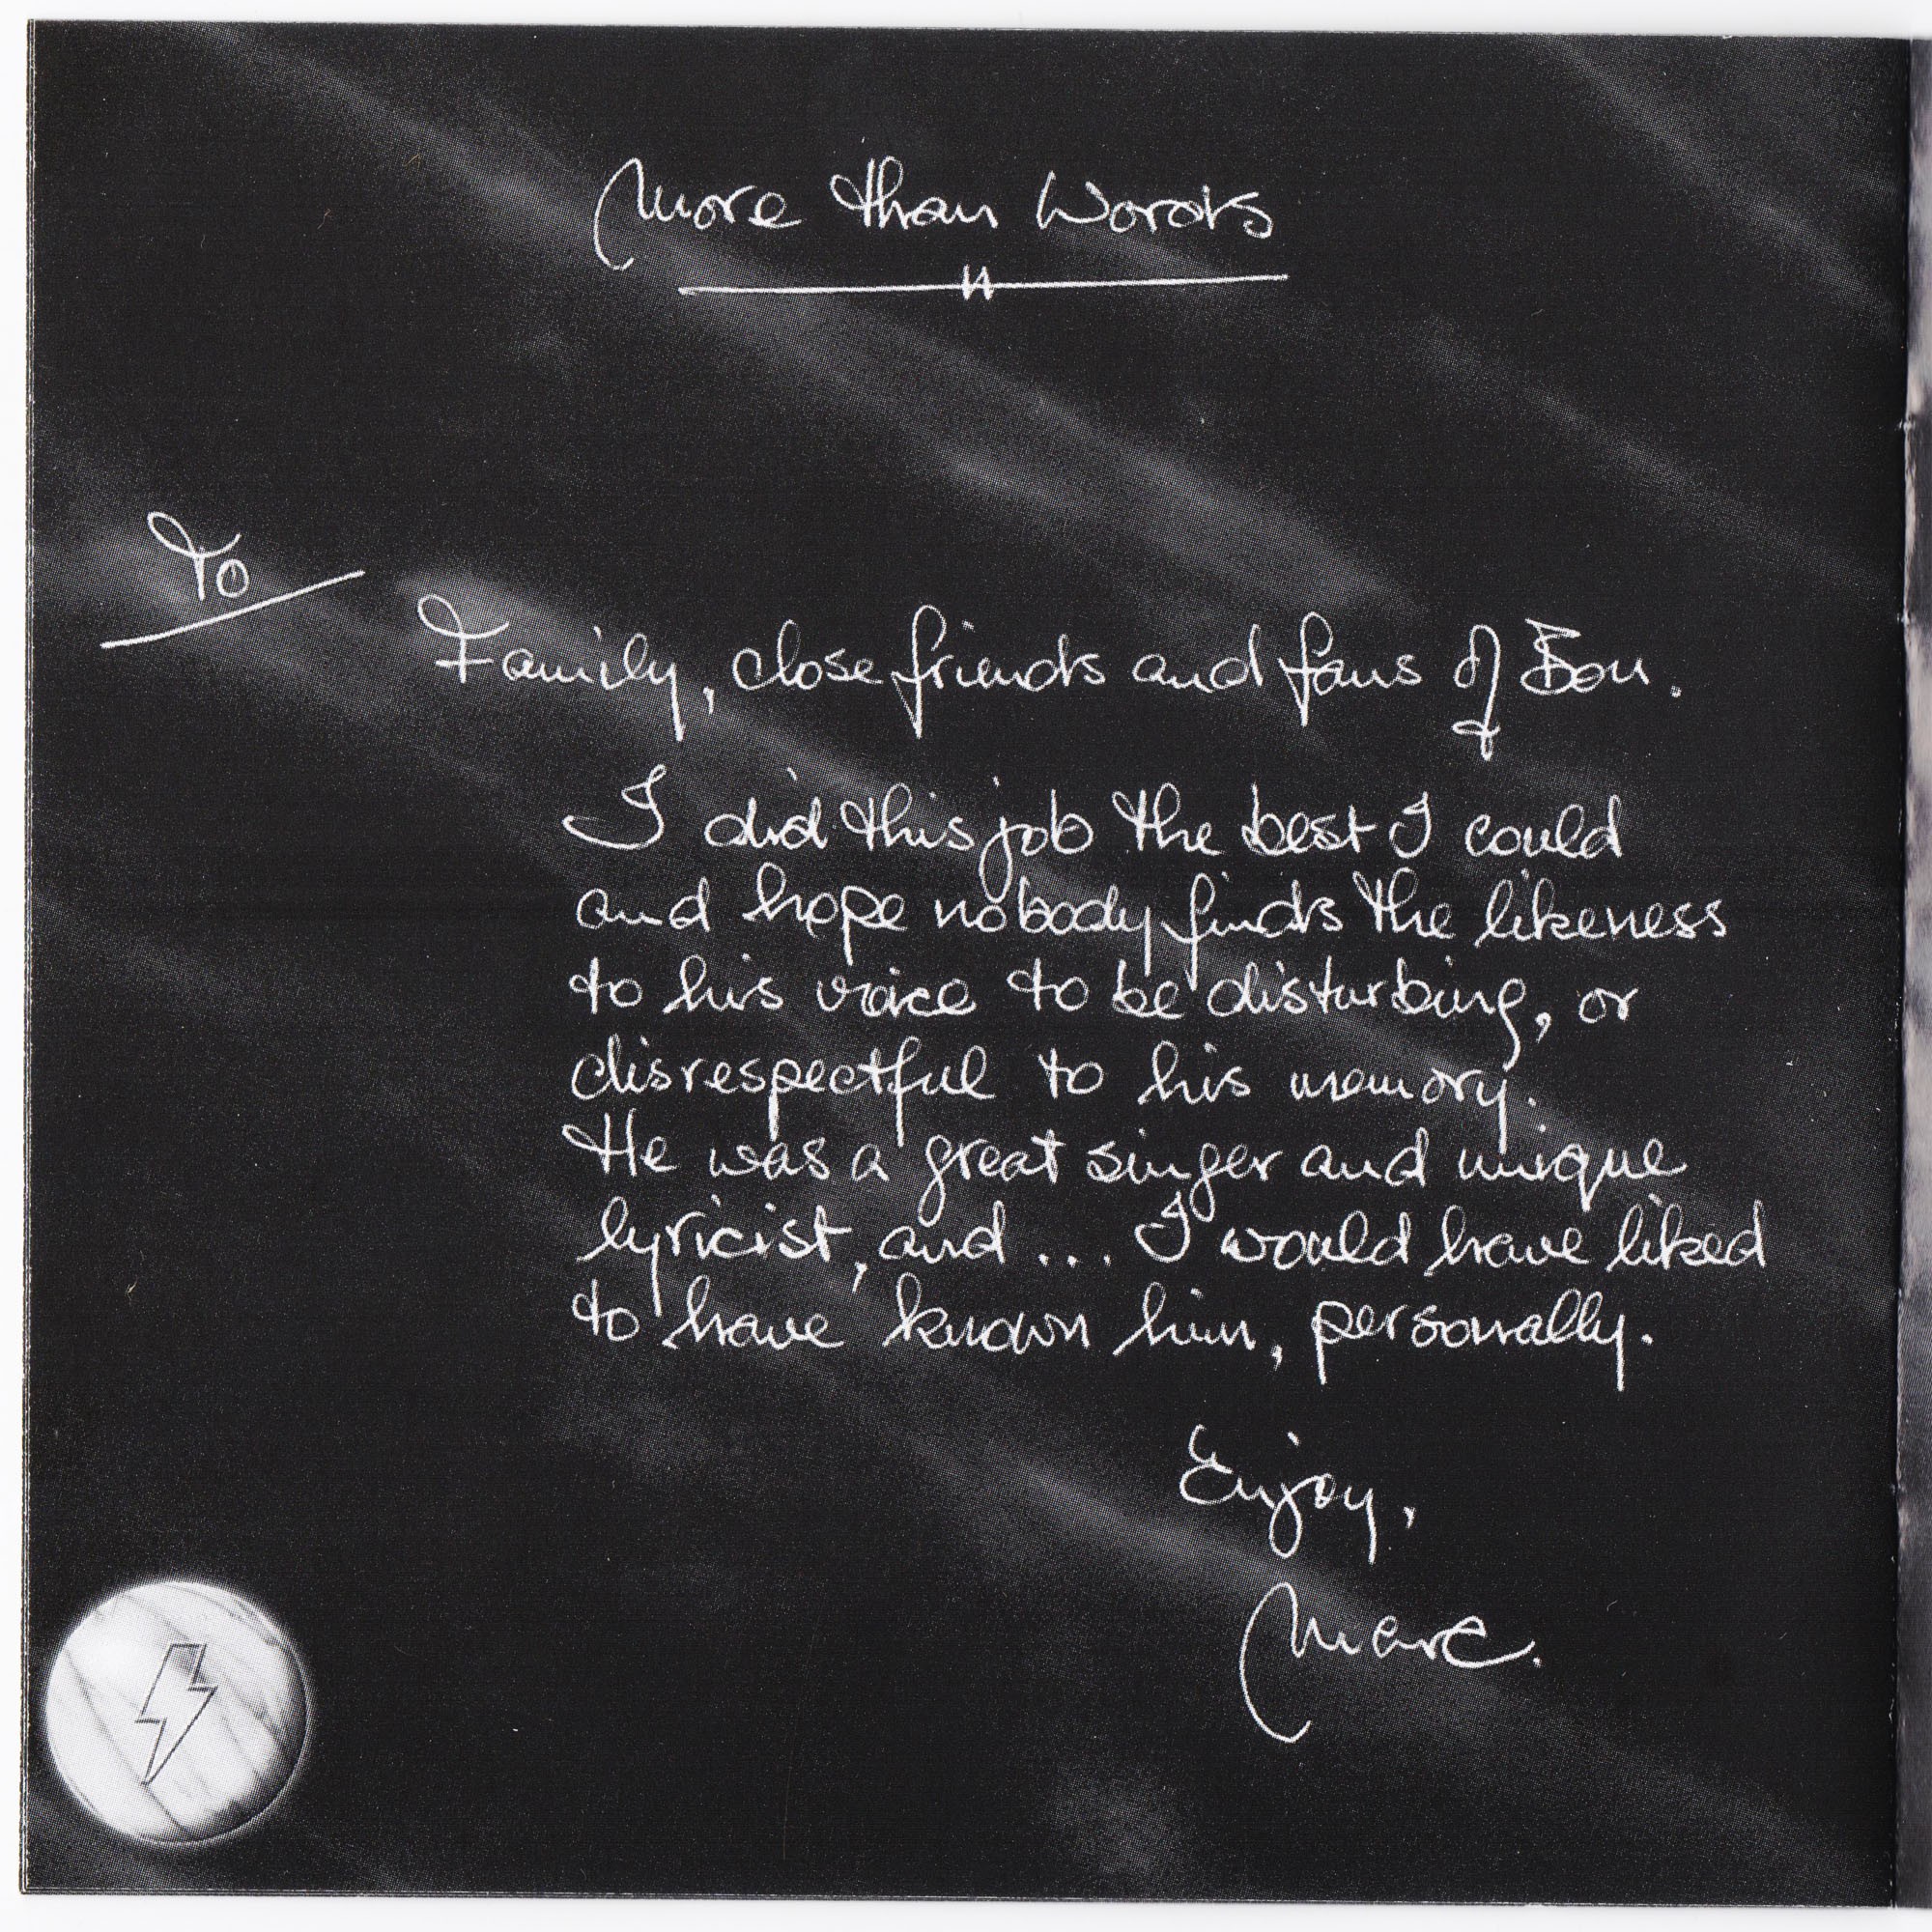 More than Words
To
Family, close friends and fans of Bon.
I did this job the best I could
and hope nobody finds the likeness
to his voice to be disturbing, or
disrespectful to his memory.
He was a great singer and unique
lyricist, and ... I would have liked
to have known him, personally.
Enjoy,
Marc.